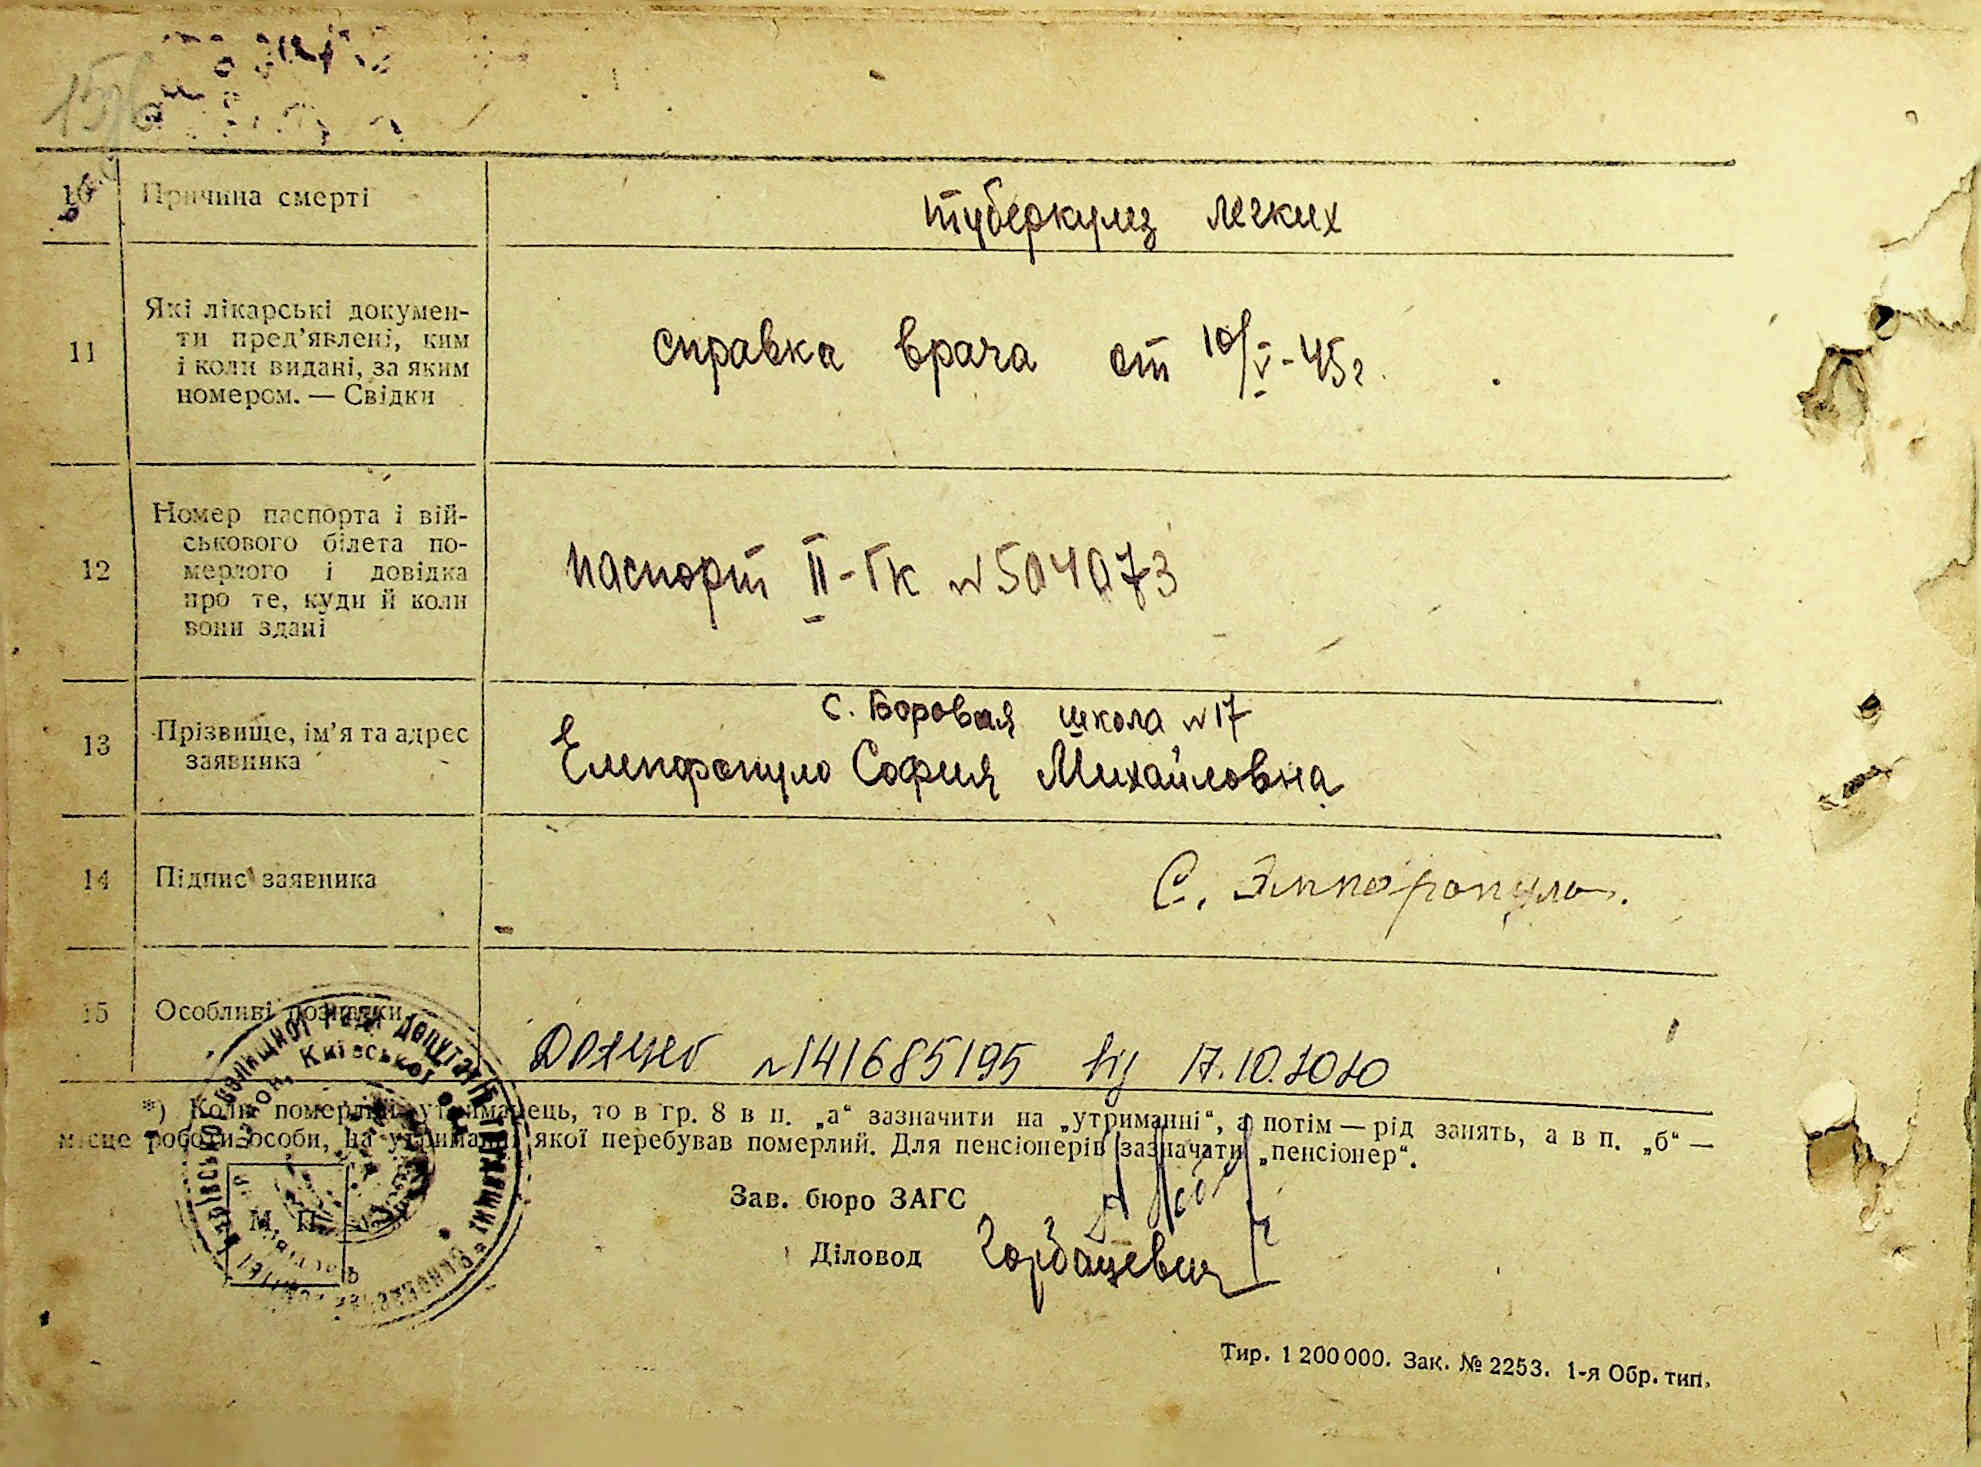 10 Причина смерті туберкулез легких
11 Які лікарські докумен-
ти пред’явлені, ким
і коли видані, за яким
номером. — Свідки
справка врача от 10/V-45г.
12 Номер паспорта і вій-
ськового білета по-
мерлого і довідка
про те, куди й коли
вони здані
паспорт II-ГК N 504073
13 Прізвище, ім’я та адрес
заявника
с. Боровая школа N 17
София Михайловна
14 Підпис заявника
С.
15 Особливі позначки
N 141685195 від 17.10.2020
*) Коли померлий утриманець, то в гр. 8 в п. „а“ зазначити на „утриманні“, а потім — рід занять, а в п. „б“ —
місце роботи особи, на утриманні якої перебував померлий. Для пенсіонерів зазначати „пенсіонер“.
Зав. бюро ЗАГС
М. П.
Діловод Горбацевич
Тир. 1 200 000. Зак. № 2253. 1-я Обр. тип.